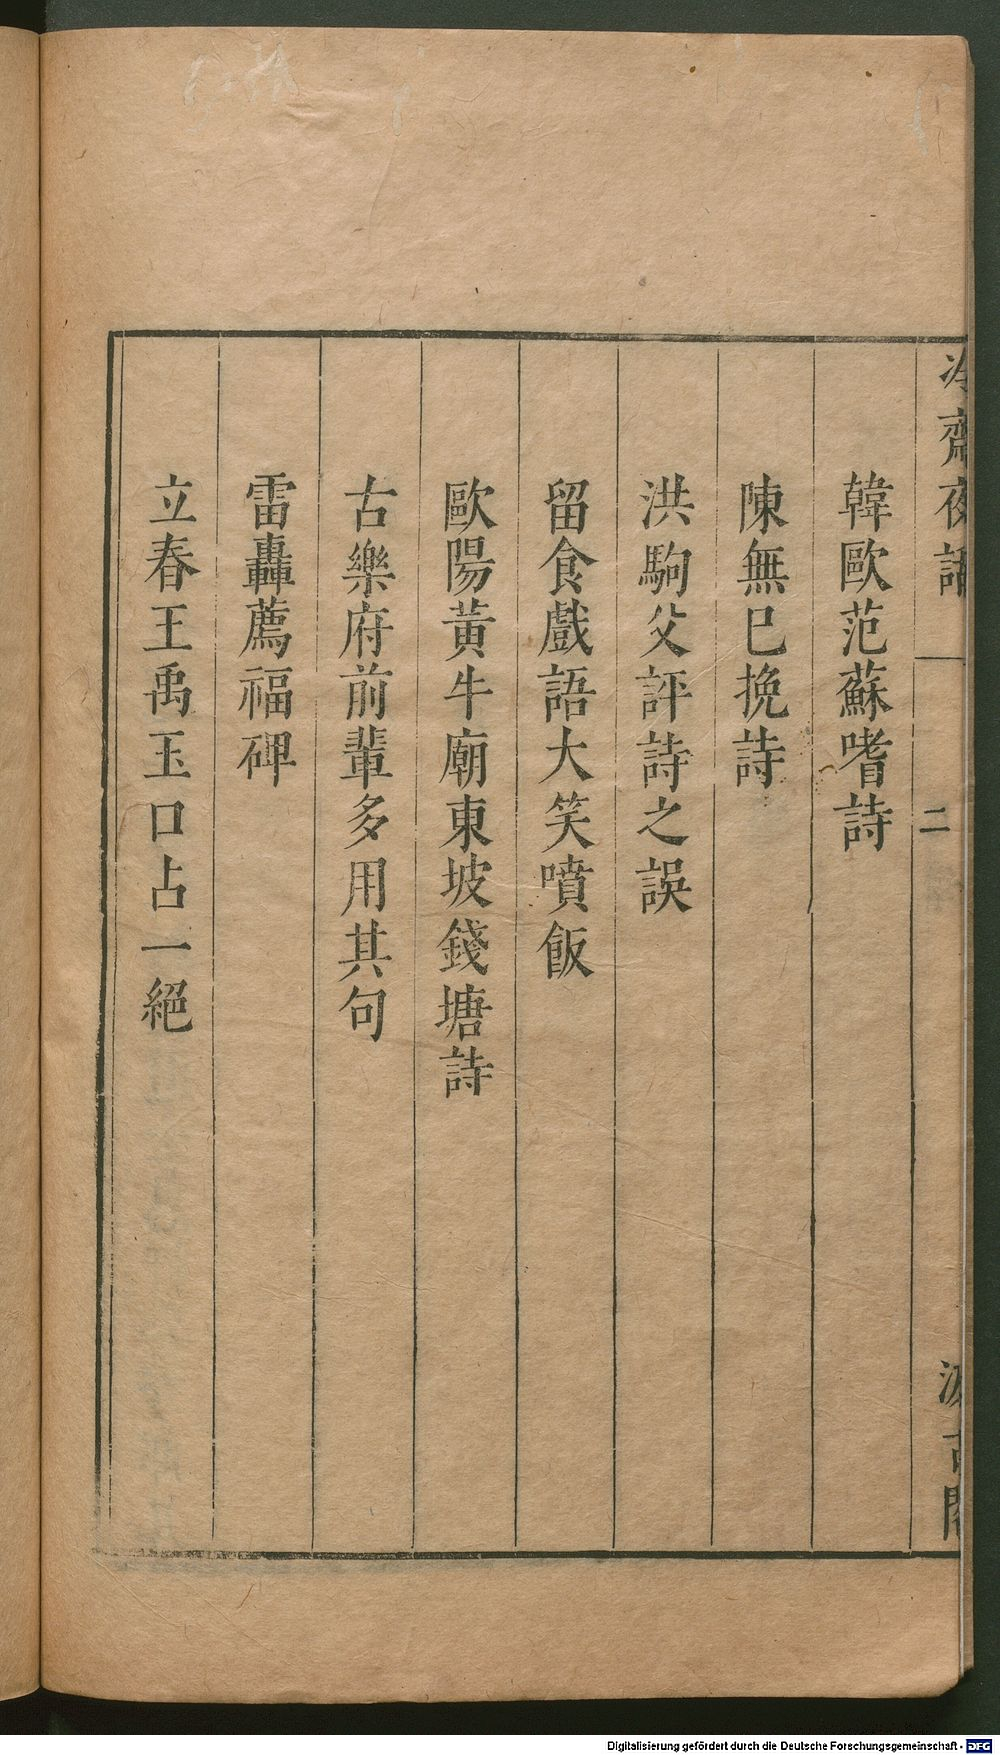 冷齋夜話
二
汲古閣
韓歐范蘇嗜詩
陳無巳挽詩
洪駒父評詩之誤
留食戲語大笑噴飯
歐陽黃牛廟東坡錢塘詩
古樂府前輩多用其句
雷轟薦福碑
立春王禹玉口占一絕
Digitalisierung gefördert durch die Deutsche Forschungsgemeinschaft - DFG